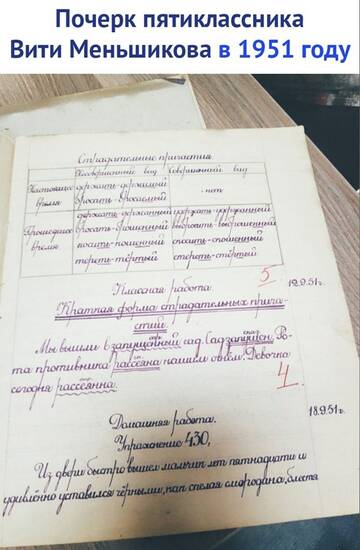 Почерк пятиклассника
Вити Меньшикова в 1951 году
Страдательные причастия.
Несовершенный вид Совершенный вид
Настоящее держать-держимый
время бросать-бросаемый - нет
держать-держанный удержать-удержанный
Прошедшее бросать-брошенный выбросить-выброшенный
время носить-ношенный
тереть-тёртый стереть-стёртый
5
Классная работа. 12.9.51г.
Краткая форма страдательных прича-
стий.
Мы вышли в запущенный сад. Сад запущен. Ро-
та противника рассеяна нашим огнём. Девочка
сегодня рассеянна.
4
Домашняя работа. 18.9.51г.
Упражнение 430,
Из двери быстро вышел мальчик лет пятнадцати и
удивлённо уставился чёрными, как спелая смородина, блестя